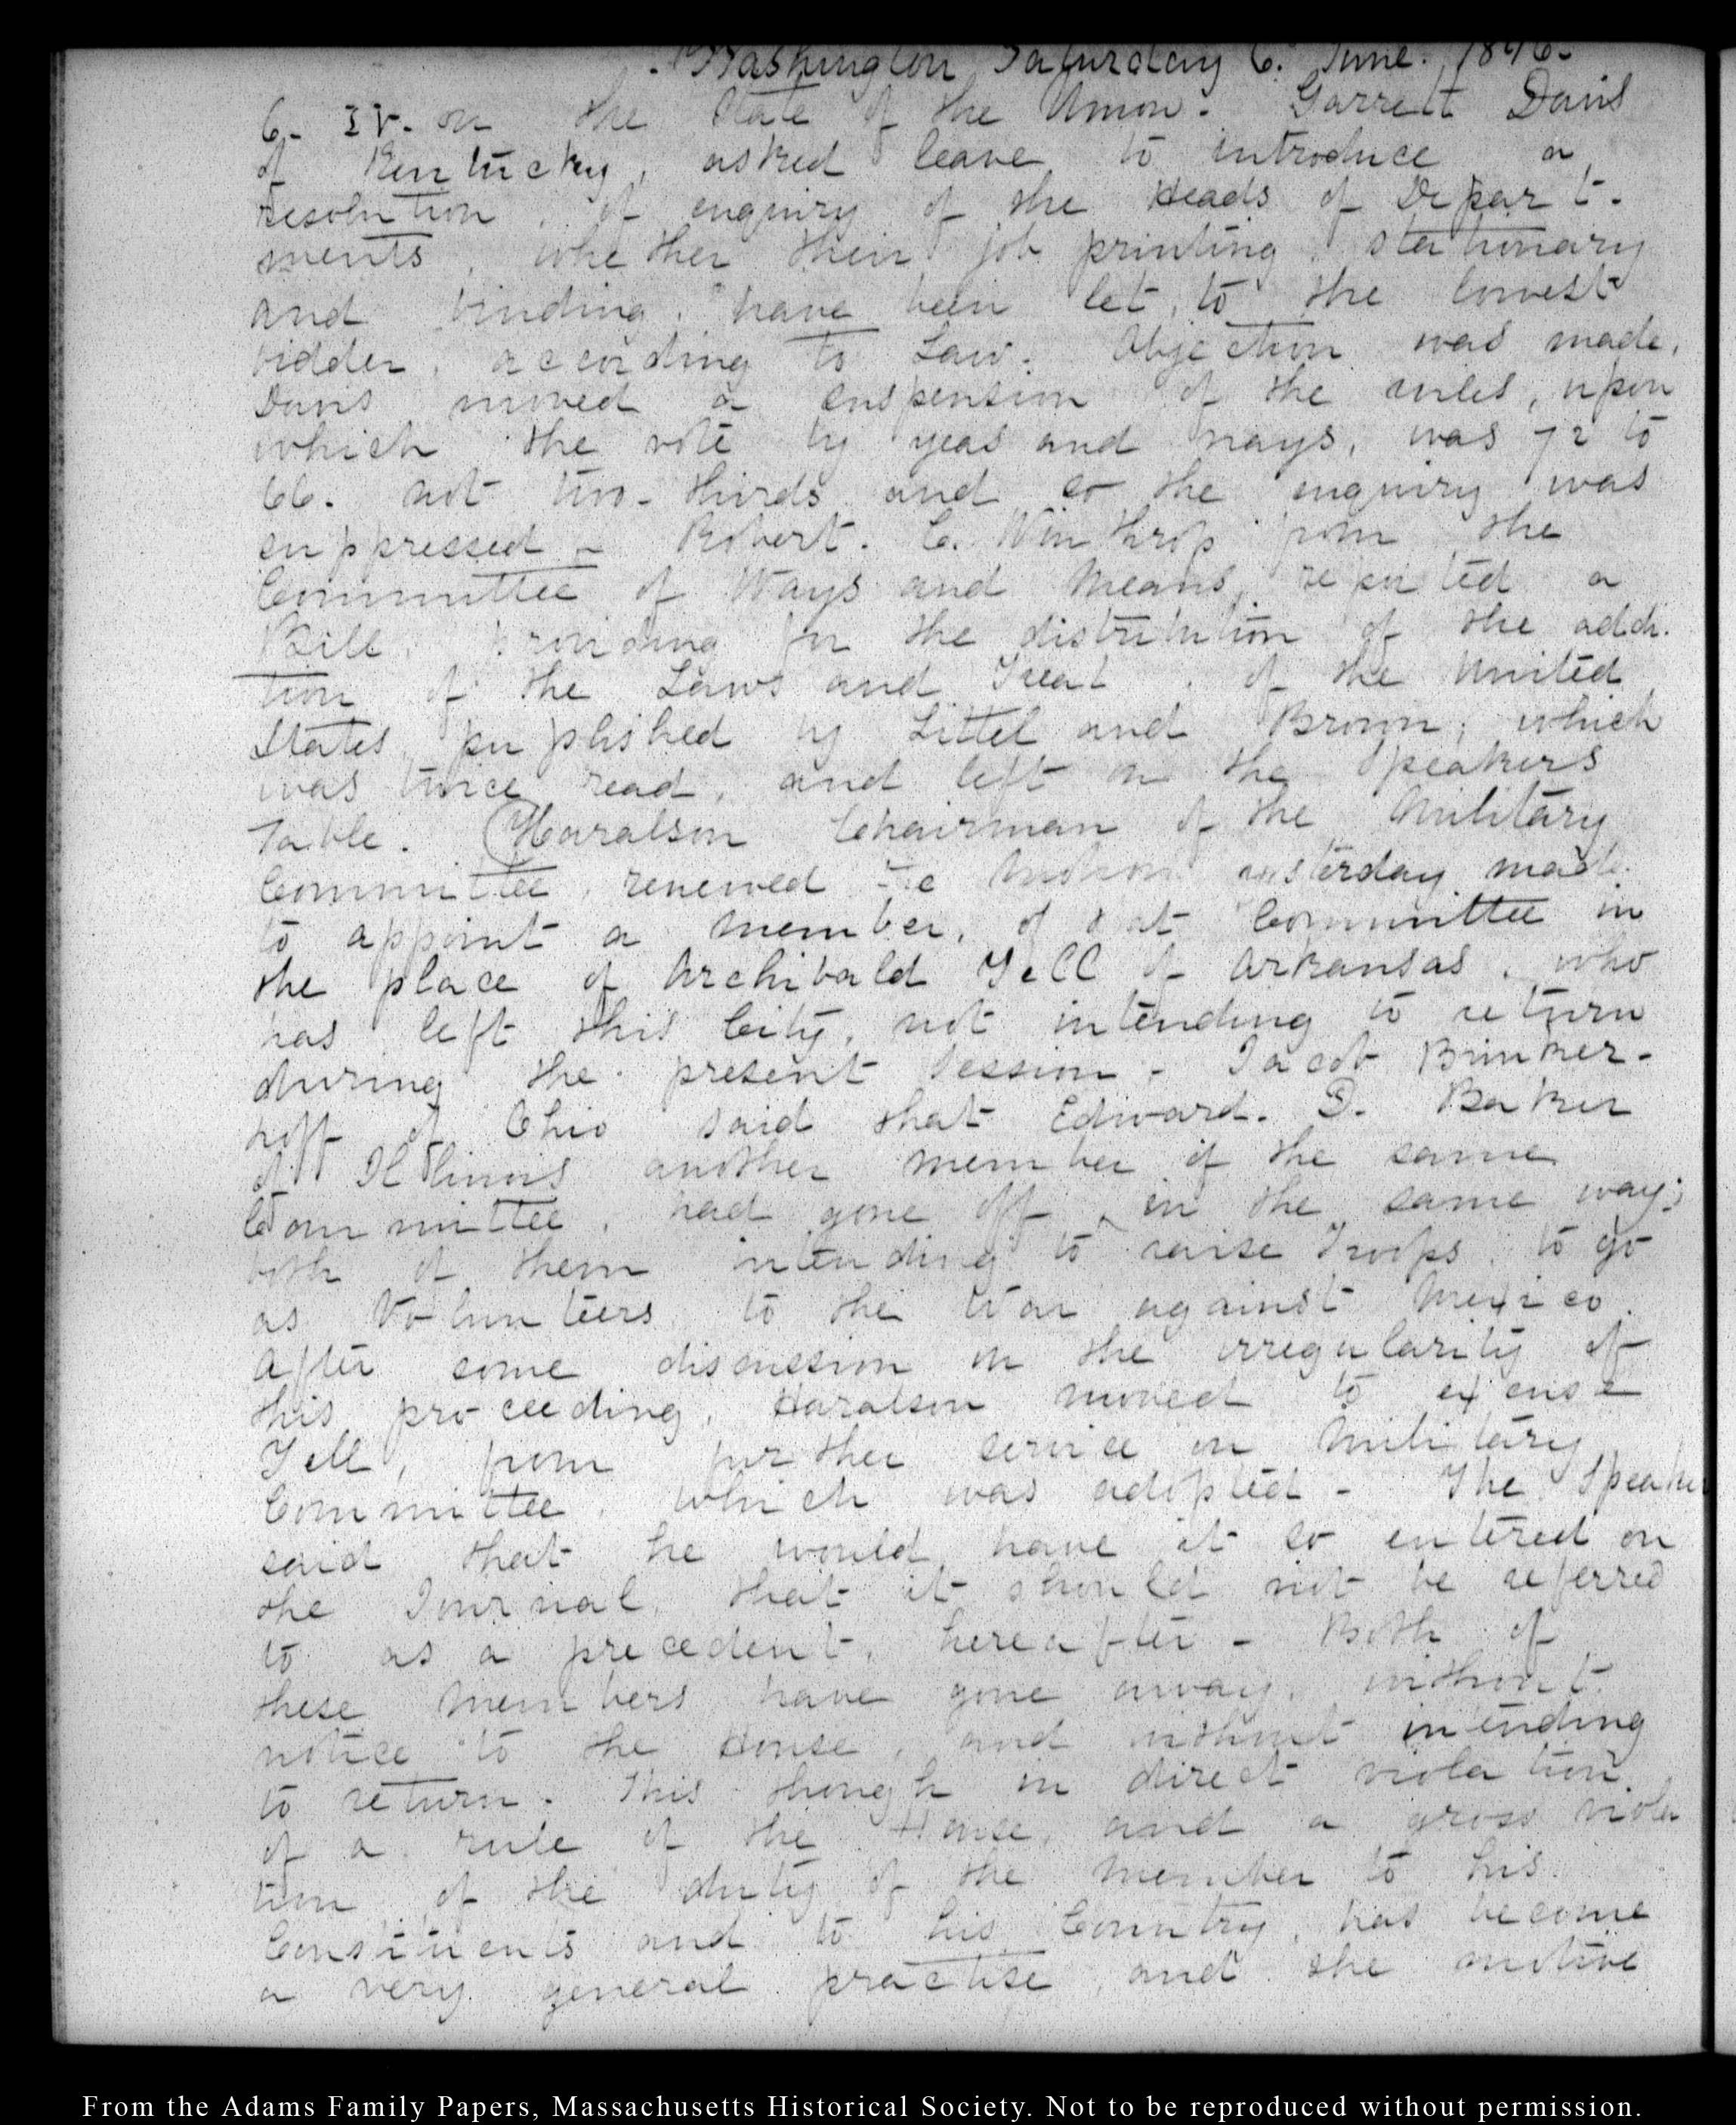 Washington Saturday 6. June. 1846-
6. IV. on the State of the Union. Garrett Davis
of Kentucky, asked leave to introduce a
resolution, of enquiry of the Heads of Depart-
ments, whether their job printing, stationary
and binding, have been let, to the lowest
bidder, according to Law. Objection was made.
Davis moved a suspension of the rules, upon
which the vote by yeas and nays, was 72 to
66. not two-thirds and so the enquiry was
suppressed - Robert. C. Winthrop from the
Committee of Ways and Means, reported a
Bill, providing for the distribution of the addi-
tion of the Laws and Treat of the United
States, puplished by Littel and Brown; which
was twice read, and left on the Speakers
Table. Haralson Chairman of the Military
Committee, renewed the motion yesterday made
to appoint a member, of that Committee in
the place of Archibald Yell of Arkansas, who
has left this City, not intending to return
during the present Session - Jacob Brinker-
hoff of Ohio said that Edward. D. Baker
of Illinois another member of the same
Committee, had gone off, in the same way;
both of them intending to raise Troops, to go
as Volunteers to the War against Mexico.
After some discussion on the irregularity of
this proceeding, Haralson moved to excuse
Yell, from further service on Military
Committee, which was adopted - The Speaker
said that he would have it so entered on
the Journal, that it should not be referred
to as a precedent, hereafter - Both of
these members have gone away, without
notice to the House, and without intending
to return. This though in direct violation
of a rule of the House, and a gross viola
tion of the duty of the member to his
Constituents and to his Country, has become
a very general practise, and the motive
From the Adams Family Papers, Massachusetts Historical Society. Not to be reproduced without permission.